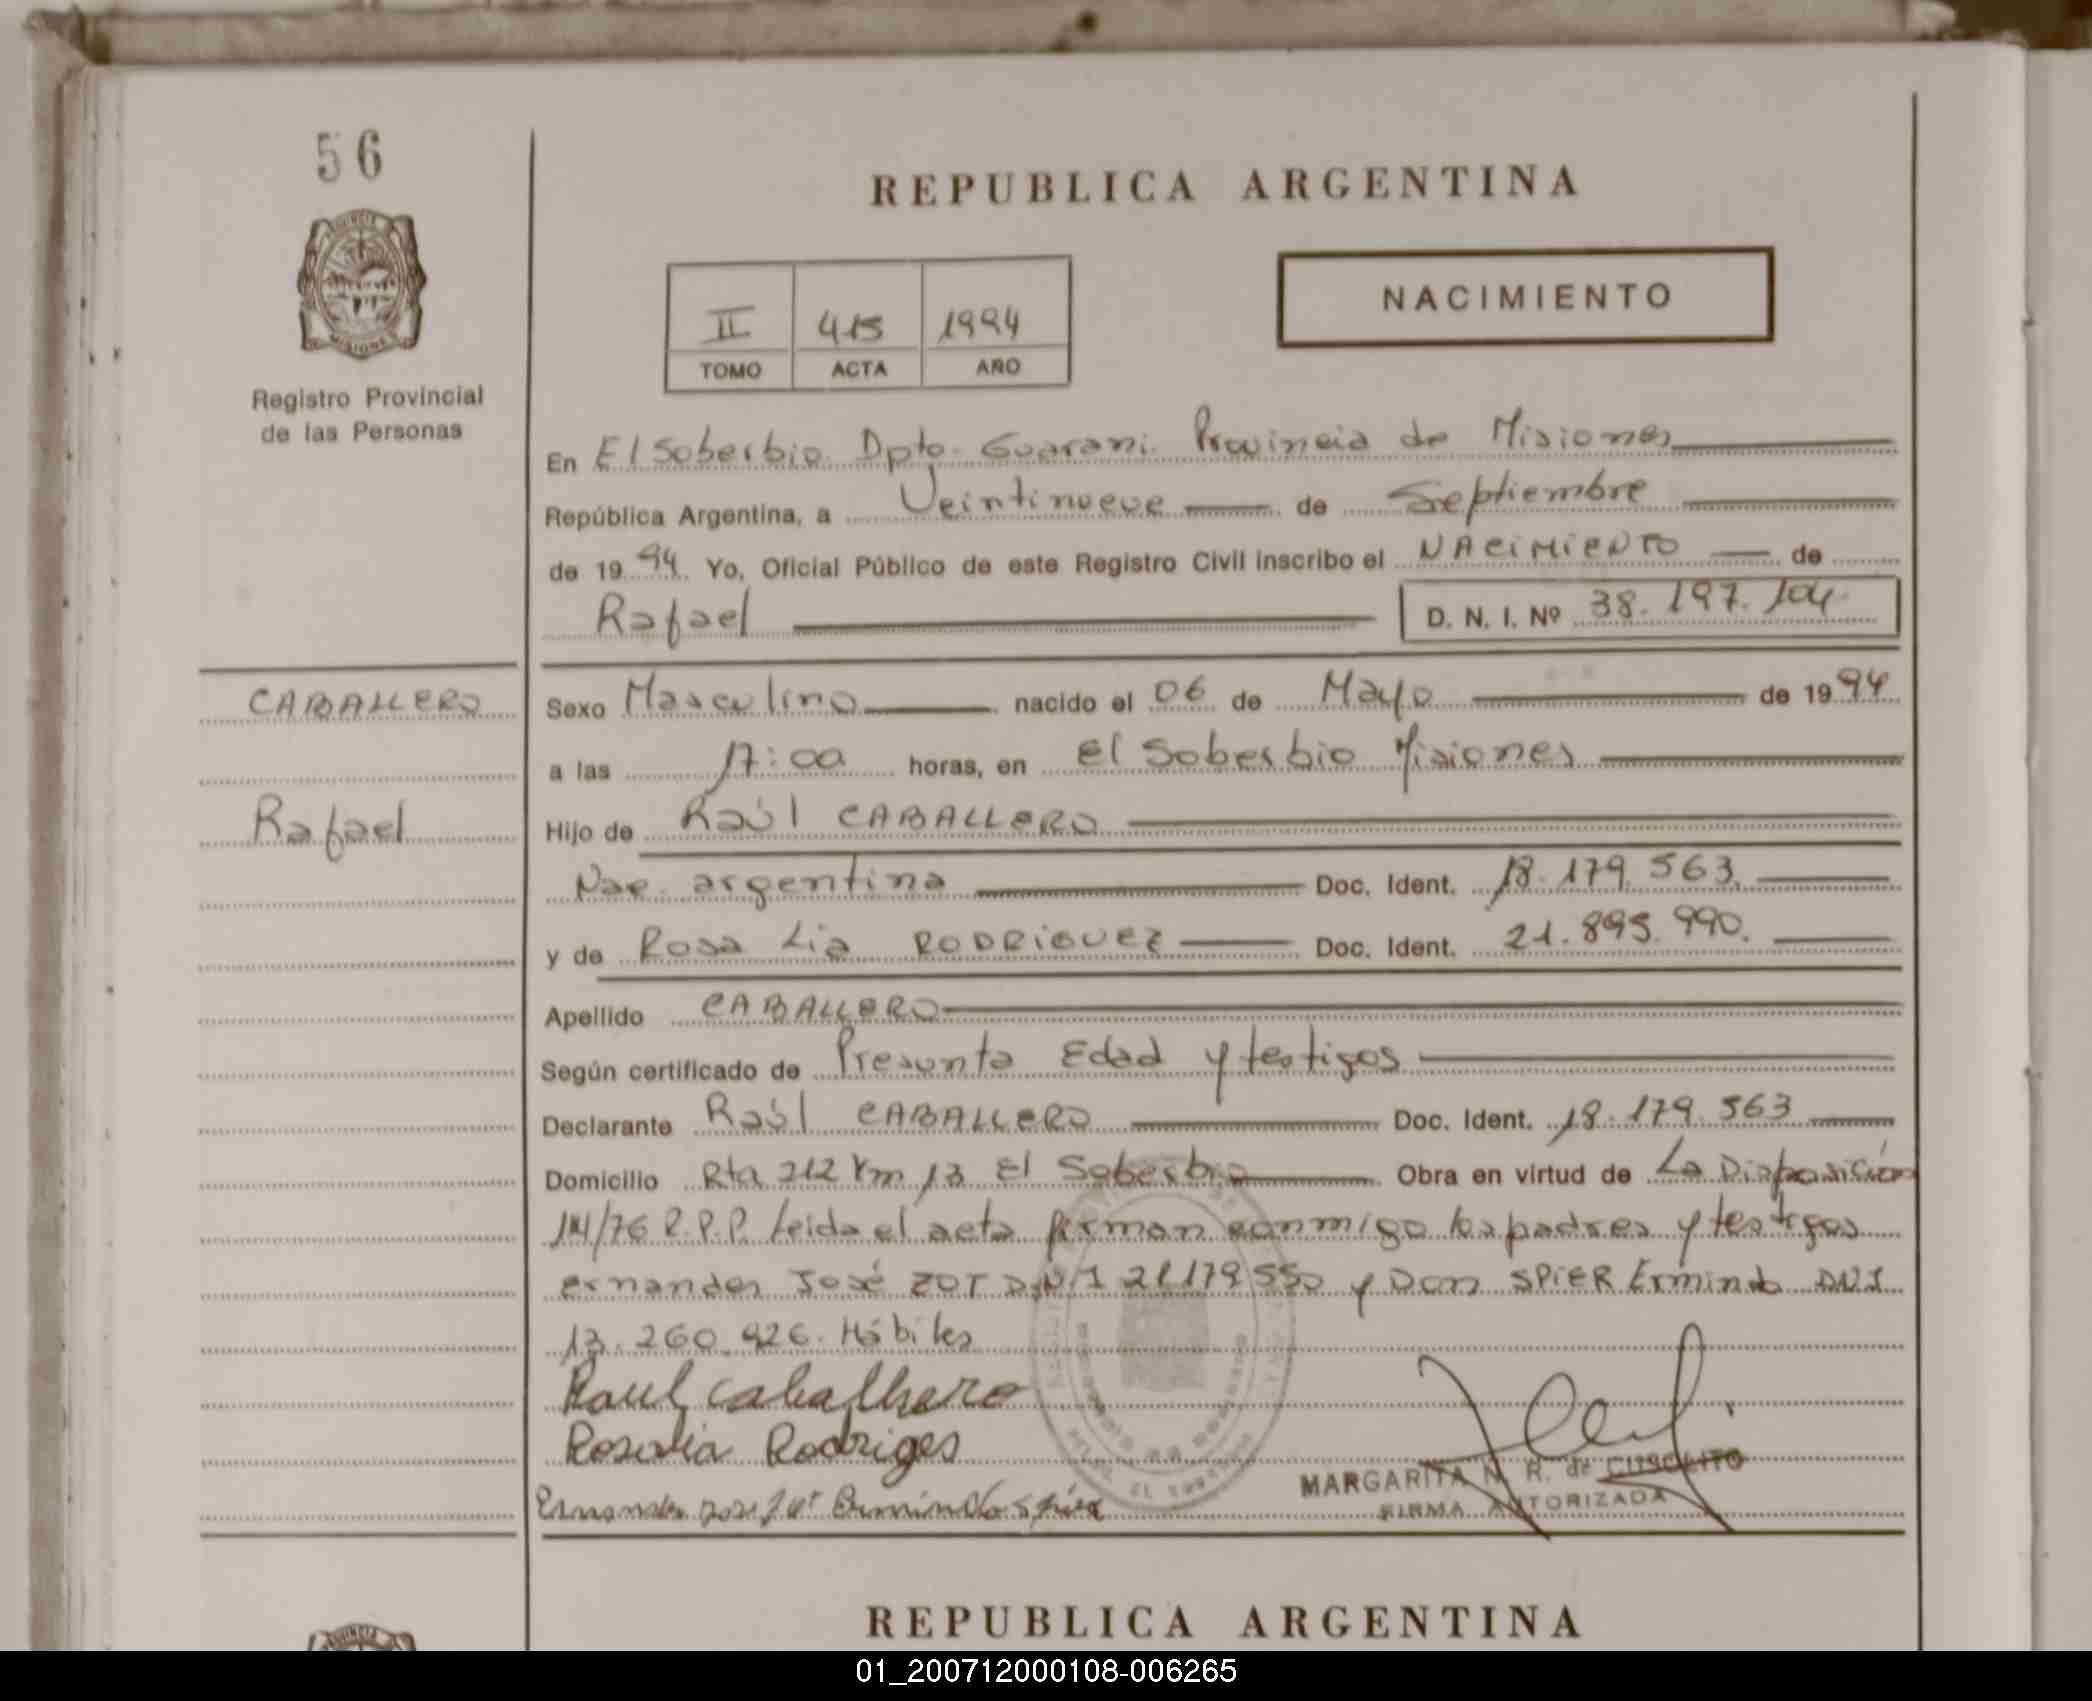 56
REPUBLICA ARGENTINA
II 415 1994
TOMO ACTA AÑO
NACIMIENTO
MISIONES
Registro Provincial
de las Personas
En El Soberbio Dpto. Guarani. Provincia de Misiones
República Argentina, a Veintinueve de Septiembre
de 1994 Yo, Oficial Público de este Registro Civil inscribo el NACIMIENTO de
Rafael D. N. I. Nº 38.197.104
CABALLERO
Rafael
Sexo Masculino nacido el 06 de Mayo de 1994
a las 17:00 horas, en El Soberbio Misiones
Hijo de Raúl CABALLERO
Nac. argentina Doc. Ident. 18.179.563.
y de Rosa Lia RODRIGUEZ Doc. Ident. 21.895.990.
Apellido CABALLERO
Según certificado de Presunta Edad y testigos
Declarante Raúl CABALLERO Doc. Ident. 18.179.563
Domicilio Rta 212 Km 13 El Soberbio Obra en virtud de La Disposición
114/76 R.P.P. Leida el acta firman conmigo los padres y testigos
ernandes José ZOT D.N.I 21.179.550 y Don SPIER Ermindo DNI
13.260.926. Hábiles
Raul Caballhero
Rosalia Rodriges
MARGARITA N. R. de CUSOLITO
FIRMA AUTORIZADA
REPUBLICA ARGENTINA
01_200712000108-006265